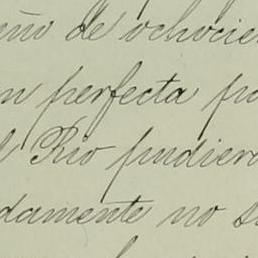 eño de ochocie
n perfecta pa
l Rio pudiero
damente no s